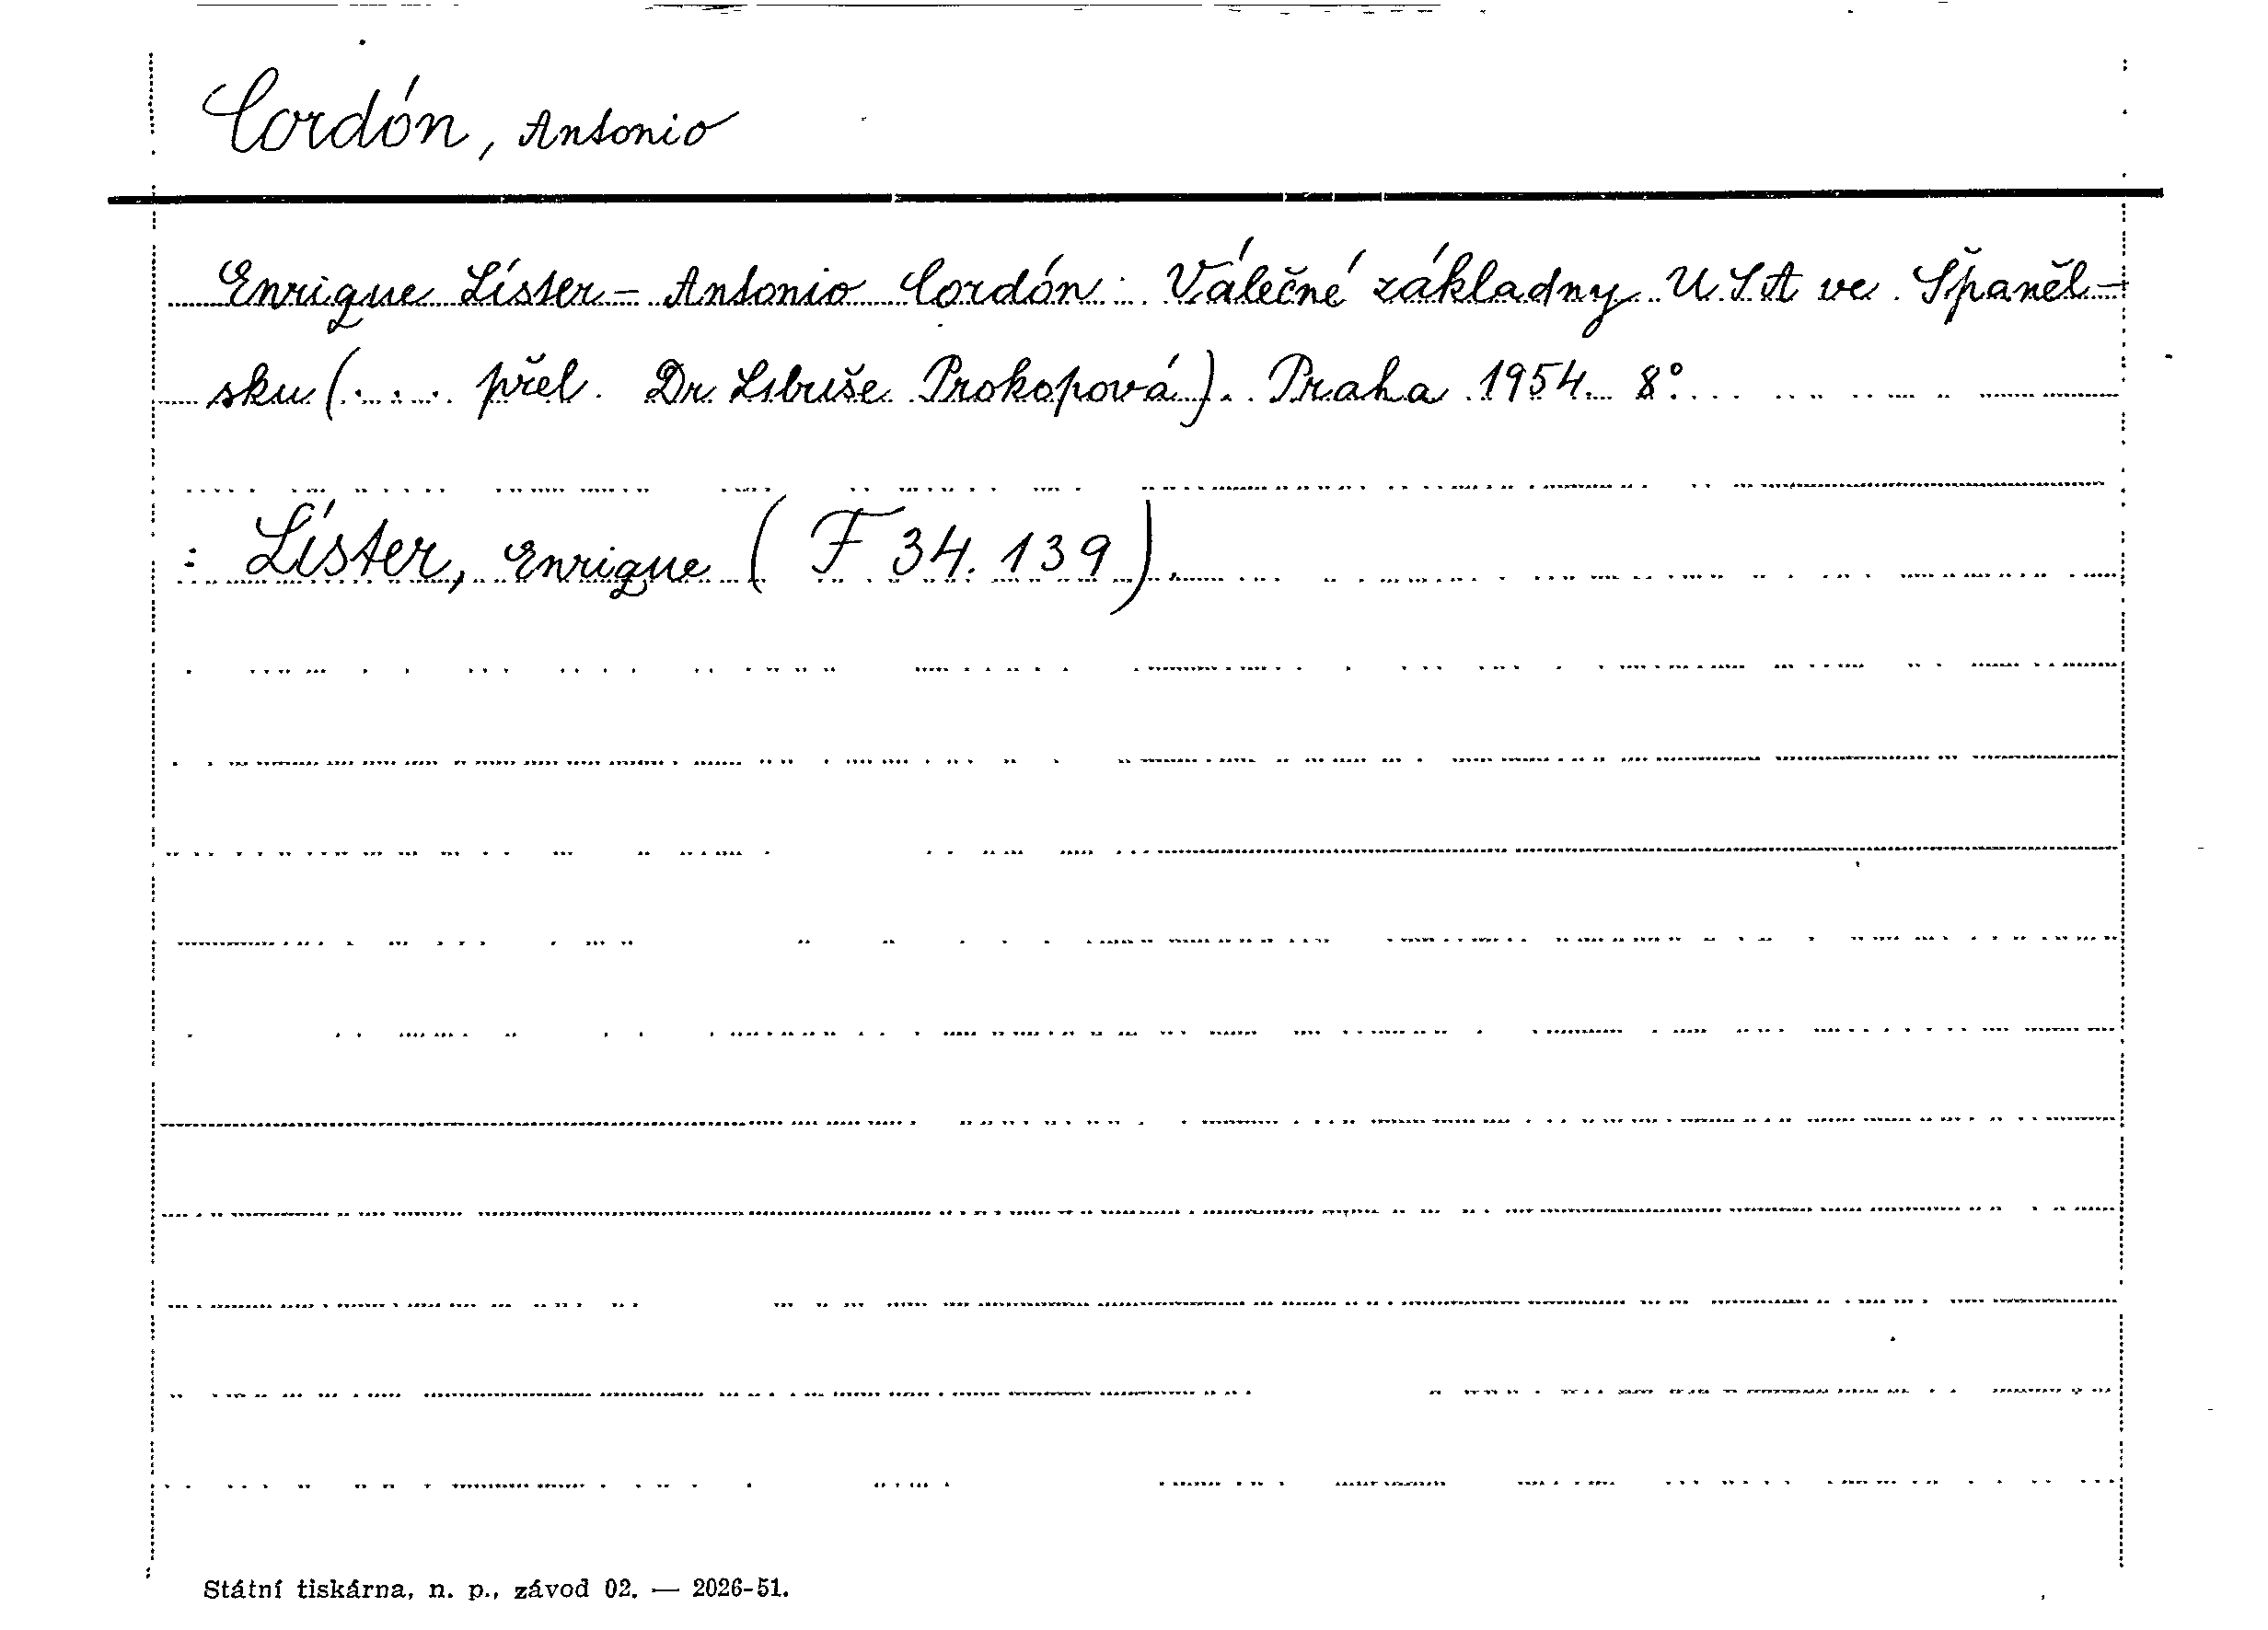 Cordón, Antonio
Enrique Líster – Antonio Cordón: Válečné základny USA ve Španěl-
sku (... přel. Dr Libuše Prokopová). Praha 1954. 8°.
: Líster, Enrique (F 34.139).
Státní tiskárna, n. p., závod 02. — 2026-51.